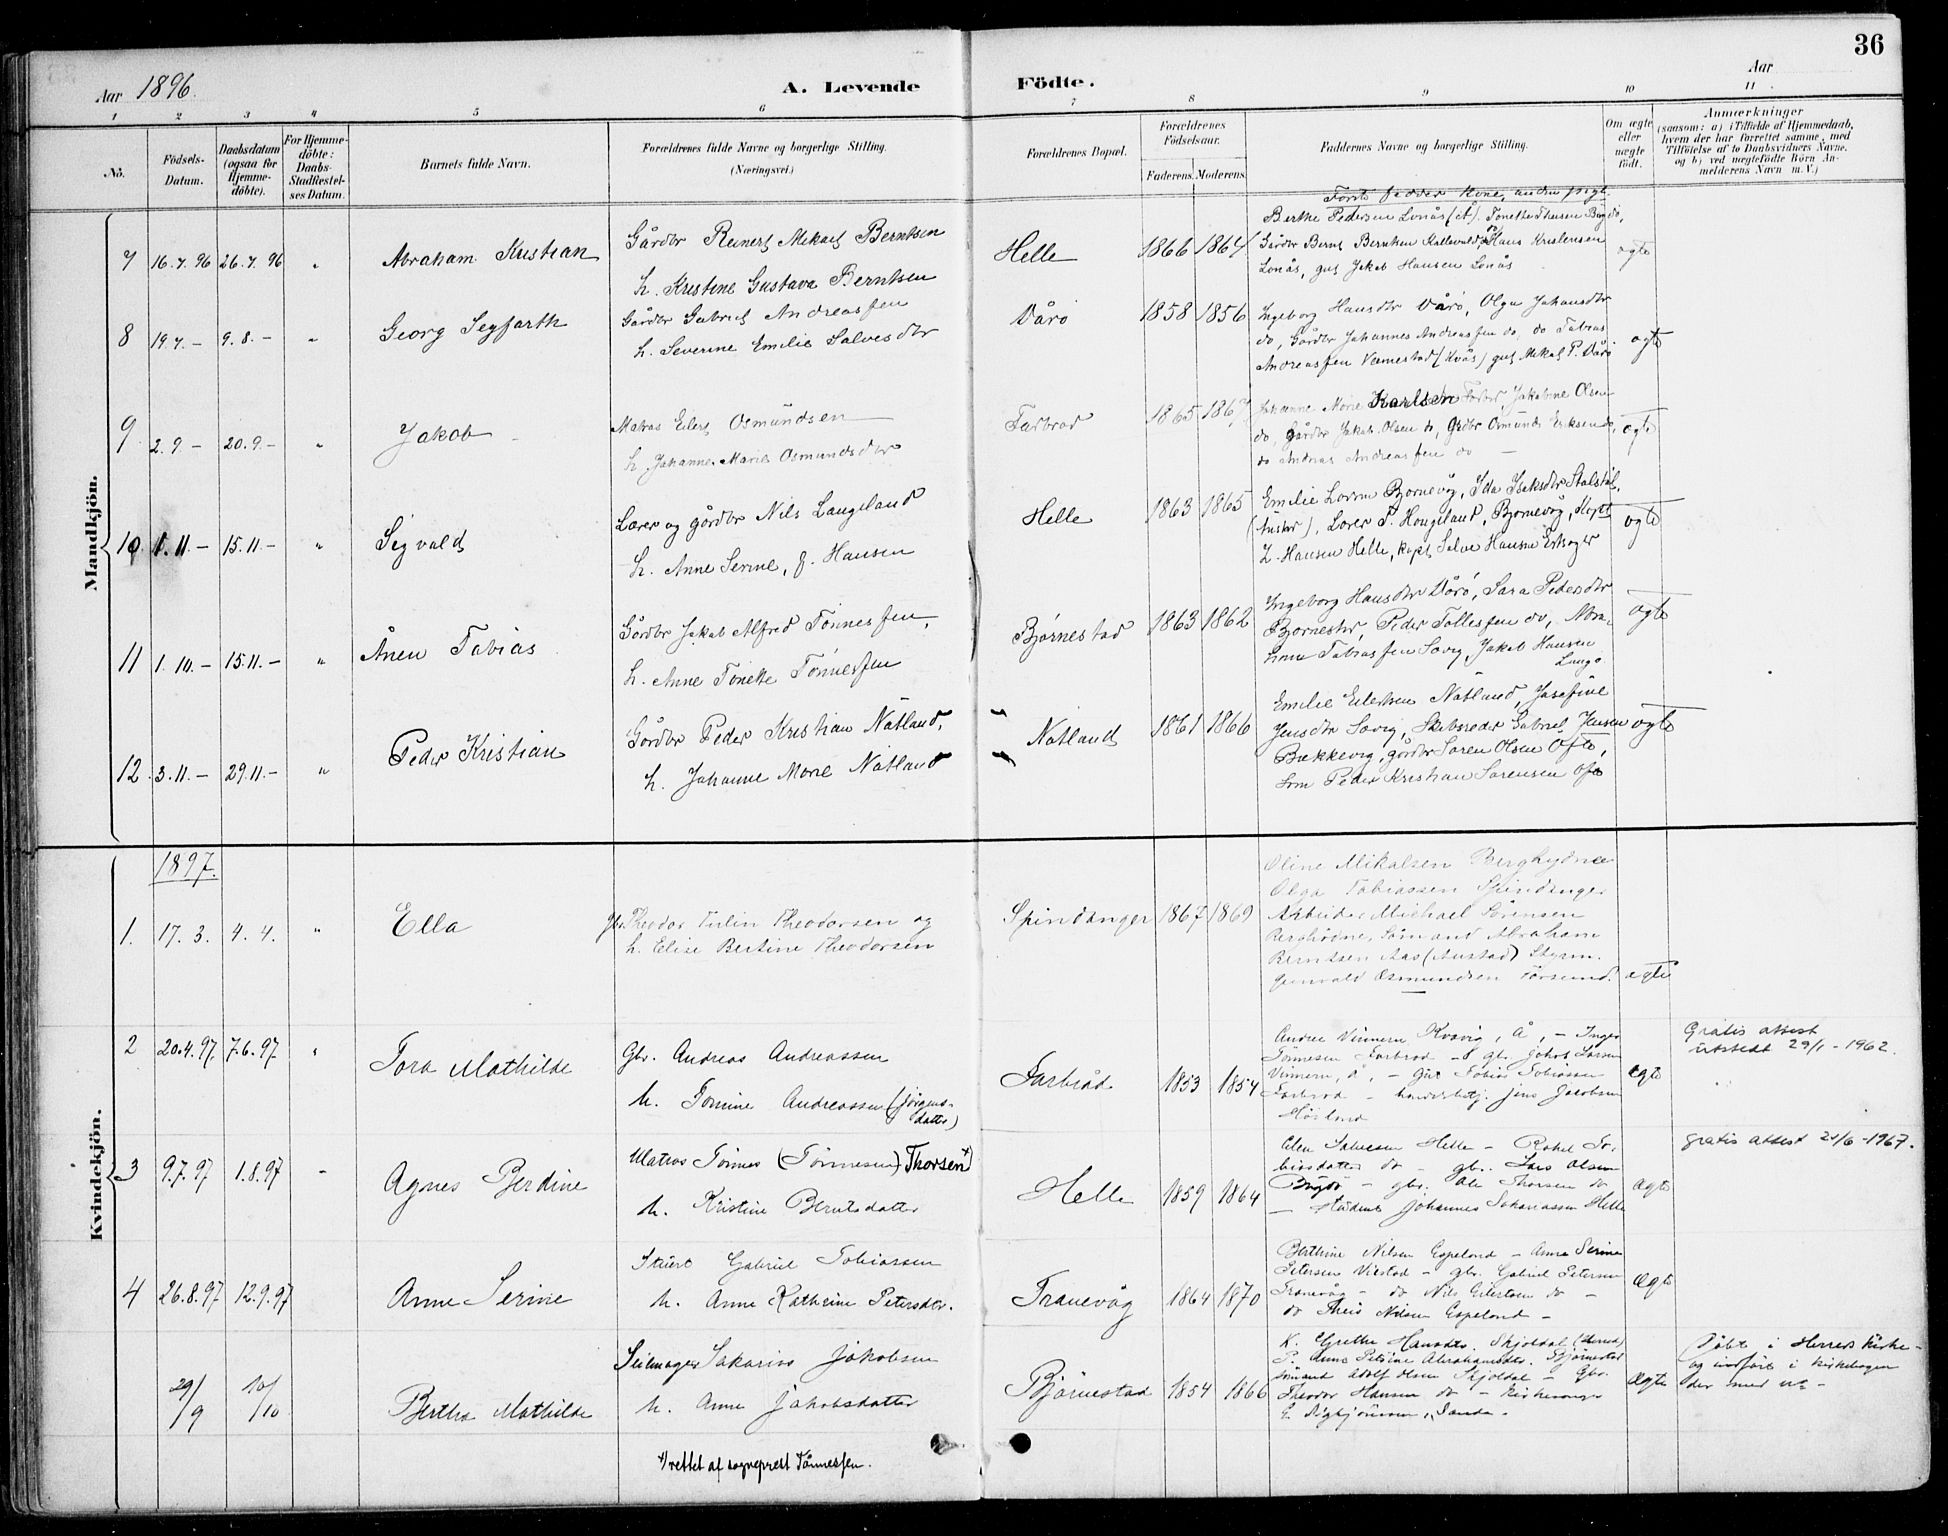 36
Aar 1896.
A. Levende Födte.
Aar
1 2 3 4 5 6 7 8 9 10 11
No.
Födsels-Datum.
Daabsdatum (ogsaa for Hjemme-döbte).
For Hjemme-döbte: Daabs-Stadfæstel-ses Datum.
Barnets fulde Navn.
Forældrenes fulde Navne og borgerlige Stilling.
(Næringsvei.)
Forældrenes Bopæl.
Forældrenes Födselsaar.
Faderens. Moderens.
Faddernes Navne og borgerlige Stilling.
Om ægte eller uægte födt.
Anmærkninger
(saasom: a) i Tilfælde af Hjemmedaab,
hvem der har forrettet samme, med
Tilföielse af to Daabsvidners Navne,
og b) ved uægtefödte Börn An-
melderens Navn m. V.)
Mandkjön.
Første fadder kone, anden pige.
7 16.7.96 26.7.96 " Abraham Kristian
Gårdbr Reinert Mikael Berntsen
h. Kristine Gustava Berntsen
Helle 1866 1864
Berthe Pedersen Lonås (Å). Tonette Thersen do,
Gårdbr Bernt Berntsen Hans Kristensen
Lonås, gut Jakob Hansen Lonås
ægte
8 19.7.– 9.8.– " Georg Segfarth
Gårdbr Gabriel Andreassen
h. Severine Emilie Salvesdtr
Vårö 1858 1856
Ingeborg Hansdtr Vårö, Olga Johansdtr
do, Gårdbr Johannes Andreassen do, do Tobias
Andreassen Vemestad (Kvås) gut Mikal P. Vårö
ægte
9 2.9.– 20.9.– " Jakob
Matros Eilert Osmundsen
h. Johanne Marie Osmundsdtr
Farbrod 1865 1867
Johanne Marie Karlsen Jakobine Olsen
do, Gårdbr Jakob Olsen do, Grdbr Osmund Eriksen do,
do Andreas Andreassen do –
ægte
10 1.11.– 15.11.– " Sigvald
Lærer og gårdbr Nils Langeland
h. Anne Serine, f. Hansen
Helle 1863 1865
Emilie Bjornevåg, Ida Isaksdtr
Lærer P. Hougeland, Bjornevåg, Kapt
L. Hansen Helle, kapt Salve Hansen
ægte
11 1.10.– 15.11.– " Ånen Tobias
Gårdbr Jakob Alfred Tönnessen,
h. Anne Tonette Tönnessen
Bjørnestad 1863 1862
Ingeborg Hansdtr Vårö, Sara Pedersdtr
Bjornestad, Peder Tollessen do, Abra-
ham Tobiassen Sovig, Jakob Hansen
ægte
12 3.11.– 29.11.– " Peder Kristian
Gårdbr Peder Kristian Nåtland,
h. Johanne Marie Nåtland
Natland 1861 1866
Emilie Eilertsen Nåtland, Josefine
Jensdtr Sovig, Skibsreder Gabriel Jensen
Bækkevig, gårdbr Soren Olsen Ofte,
Som Peder Kristian Sorensen Ofte
ægte
Kvindekjön.
1897.
1. 17.3. 4.4. " Ella
Gbr. Theodor Tulin Theodorsen og
h. Elise Bertine Theodorsen
Spindanger 1867 1869
Oline Mikalsen
Olga Tobiassen Spindanger
Arbeider Michael Sörensen
Sömand Abraham
Berntsen Aas (Austad) Styrm.
Gunvald Osmundsen Farsund.
ægte
2 20.4.97 7.6.97 " Tora Mathilde
Gbr. Andreas Andreassen
h. Tomine Andreassen (Jörgens-
datter)
Farbråd 1853 1854
Vinnem, Kvavig, Å, – Inger
Tönnesen Farbrod – gb. Jakob Larsen
Vinnem, Å, – gut Tobias Tobiassen
Farbrod – Jens Jacobsen
ægte
Gratis attest
utstedt 29/1 – 1962.
3 9.7.97 1.8.97 – Agnes Berdine
Matros Tönnes (Tönnesen) Thorsen*)
h. Kristine Berntsdatter
Helle 1859 1864
Salvesen Helle – Rakel To-
biasdatter do – gb. Lars Olsen
– gbr. Ole Thorsen do
– Student Johannes Sakariassen Helle
ægte
gratis attest 21/6 – 1967.
4 26.8.97 12.9.97 Anne Serine
Gabriel Tobiassen
h. Anne Kathrine Petersdtr.
Tranevåg 1864 1870
Berthine Nilsen Espeland – Anne Serine
Petersen Vikstad – gbr. Gabriel Petersen
Tranevåg – do Nils Eilertsen do –
do Theis Nilsen Espeland –
ægte
29/9 10/10 Bertha Mathilde
Seilmager Sakarias Jakobsen
h. Anne Jakobsdatter
Bjørnestad 1854 1866
K. Grethe Hansdtr. Skjoldal (Herred)
P. Anne Petrine Abrahamsdtr. Bjørnestad
Sömand Adolf Olsen Skjoldal – Gbr.
Theodor Hansen do – Kirkesanger
ægte
Döbt i Herreds kirke –
og indfört i kirkebogen
der med nr –
*) rettet af sogneprest Tönnessen.